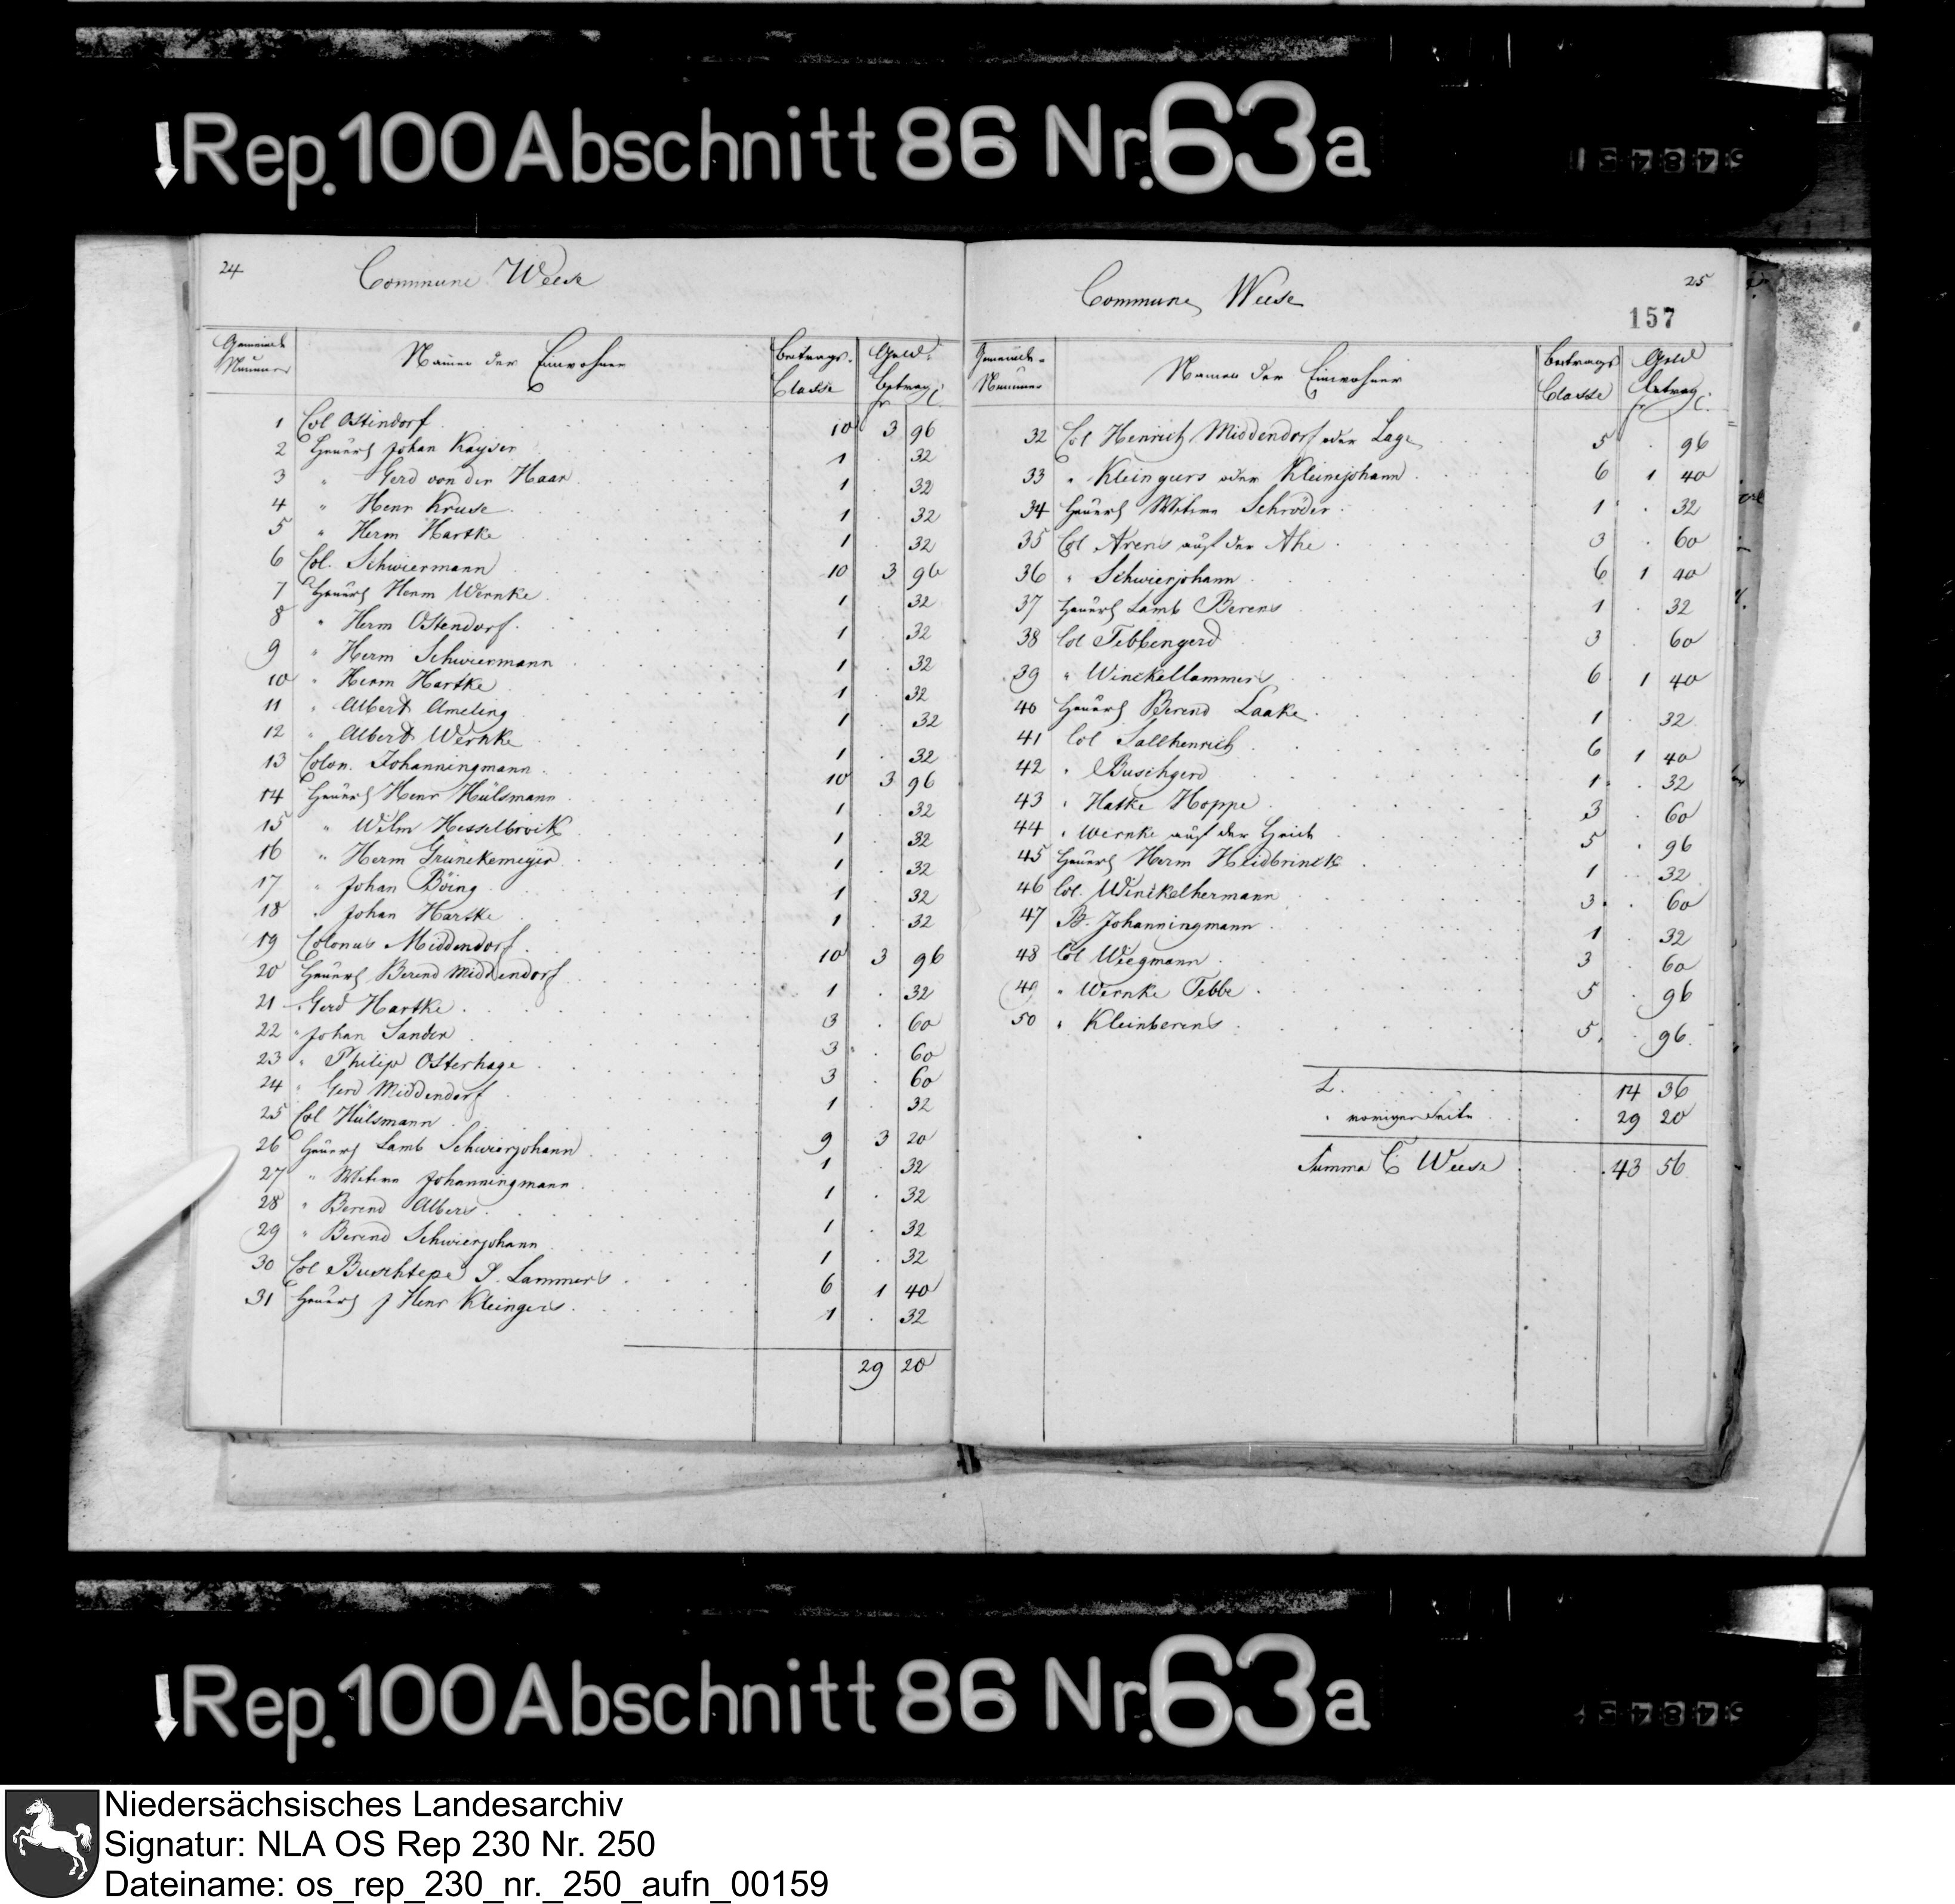 Rep. 100 Abschnitt 86 Nr. 63a
24
Commune Weese
Gemeinde Nummer | Namen der Einwohner | Beitrags-Classe | Geld-betrag fr C.
1 Col Ostindorf 10 3 96
2 Heuerl Johan Kayser 1 . 32
3 " Gerd von der Haar 1 . 32
4 " Henr Kruse 1 . 32
5 " Herm Hartke 1 . 32
6 Col. Schwiermann 10 3 96
7 Heuerl Herm Wernke 1 . 32
8 " Herm Ostendorf 1 . 32
9 " Herm Schwiermann 1 . 32
10 " Herm Hartke 1 . 32
11 " Albert Ameling 1 . 32
12 " Albert Wernke 1 . 32
13 Colon. Johanningmann 10 3 96
14 Heuerl Henr Hülsmann 1 . 32
15 " Wilm Hesselbrock 1 . 32
16 " Herm Grünekemeyer 1 . 32
17 " Johan Böing 1 . 32
18 " Johan Hartke 1 . 32
19 Colonus Middendorf 10 3 96
20 Heuerl Berend Middendorf 1 . 32
21 " Gerd Hartke 3 . 60
22 " Johan Sander 3 . 60
23 " Philip Osterhage 3 . 60
24 " Gerd Middendorf 1 . 32
25 Col Hülsmann 9 3 20
26 Heuerl Lamb Schwierjohann 1 . 32
27 " Witwe Johanningmann 1 . 32
28 " Berend Albers 1 . 32
29 " Berend Schwierjohann 1 . 32
30 Col Buschtepe J. Lammers 6 1 40
31 Heuerl J Henr Kleingers 1 . 32
29 20
25
157
Commune Weese
Gemeinde-Nummer | Namen der Einwohner | Beitrags Classe | Geld betrag fr C.
32 Col Henrich Middendorf oder Lage 5 . 96
33 " Kleingers oder Kleinejohann 6 1 40
34 Heuerl Witwe Schröder 1 . 32
35 Col Arens auf der Ahe 3 . 60
36 " Schwierjohann 6 1 40
37 Heuerl Lamb Berens 1 . 32
38 Col Tebbengerd 3 . 60
39 " Winckellammers 6 1 40
40 Heuerl Berend Laake 1 . 32
41 Col Sallhenrich 6 1 40
42 " Buschgerd 1 . 32
43 " Hatke Hoppe 3 . 60
44 " Wernke auf der Heide 5 . 96
45 Heuerl Herm Heidbrinck 1 . 32
46 Col. Winckelhermann 3 . 60
47 B. Johanningmann 1 . 32
48 Col Wiegmann 3 . 60
49 " Wernke Tebbe 5 . 96
50 " Kleinberens 5 . 96
L. 14 36
" voriger Seite 29 20
Summa C Weese 43 56
Rep. 100 Abschnitt 86 Nr. 63a
Niedersächsisches Landesarchiv
Signatur: NLA OS Rep 230 Nr. 250
Dateiname: os_rep_230_nr._250_aufn_00159